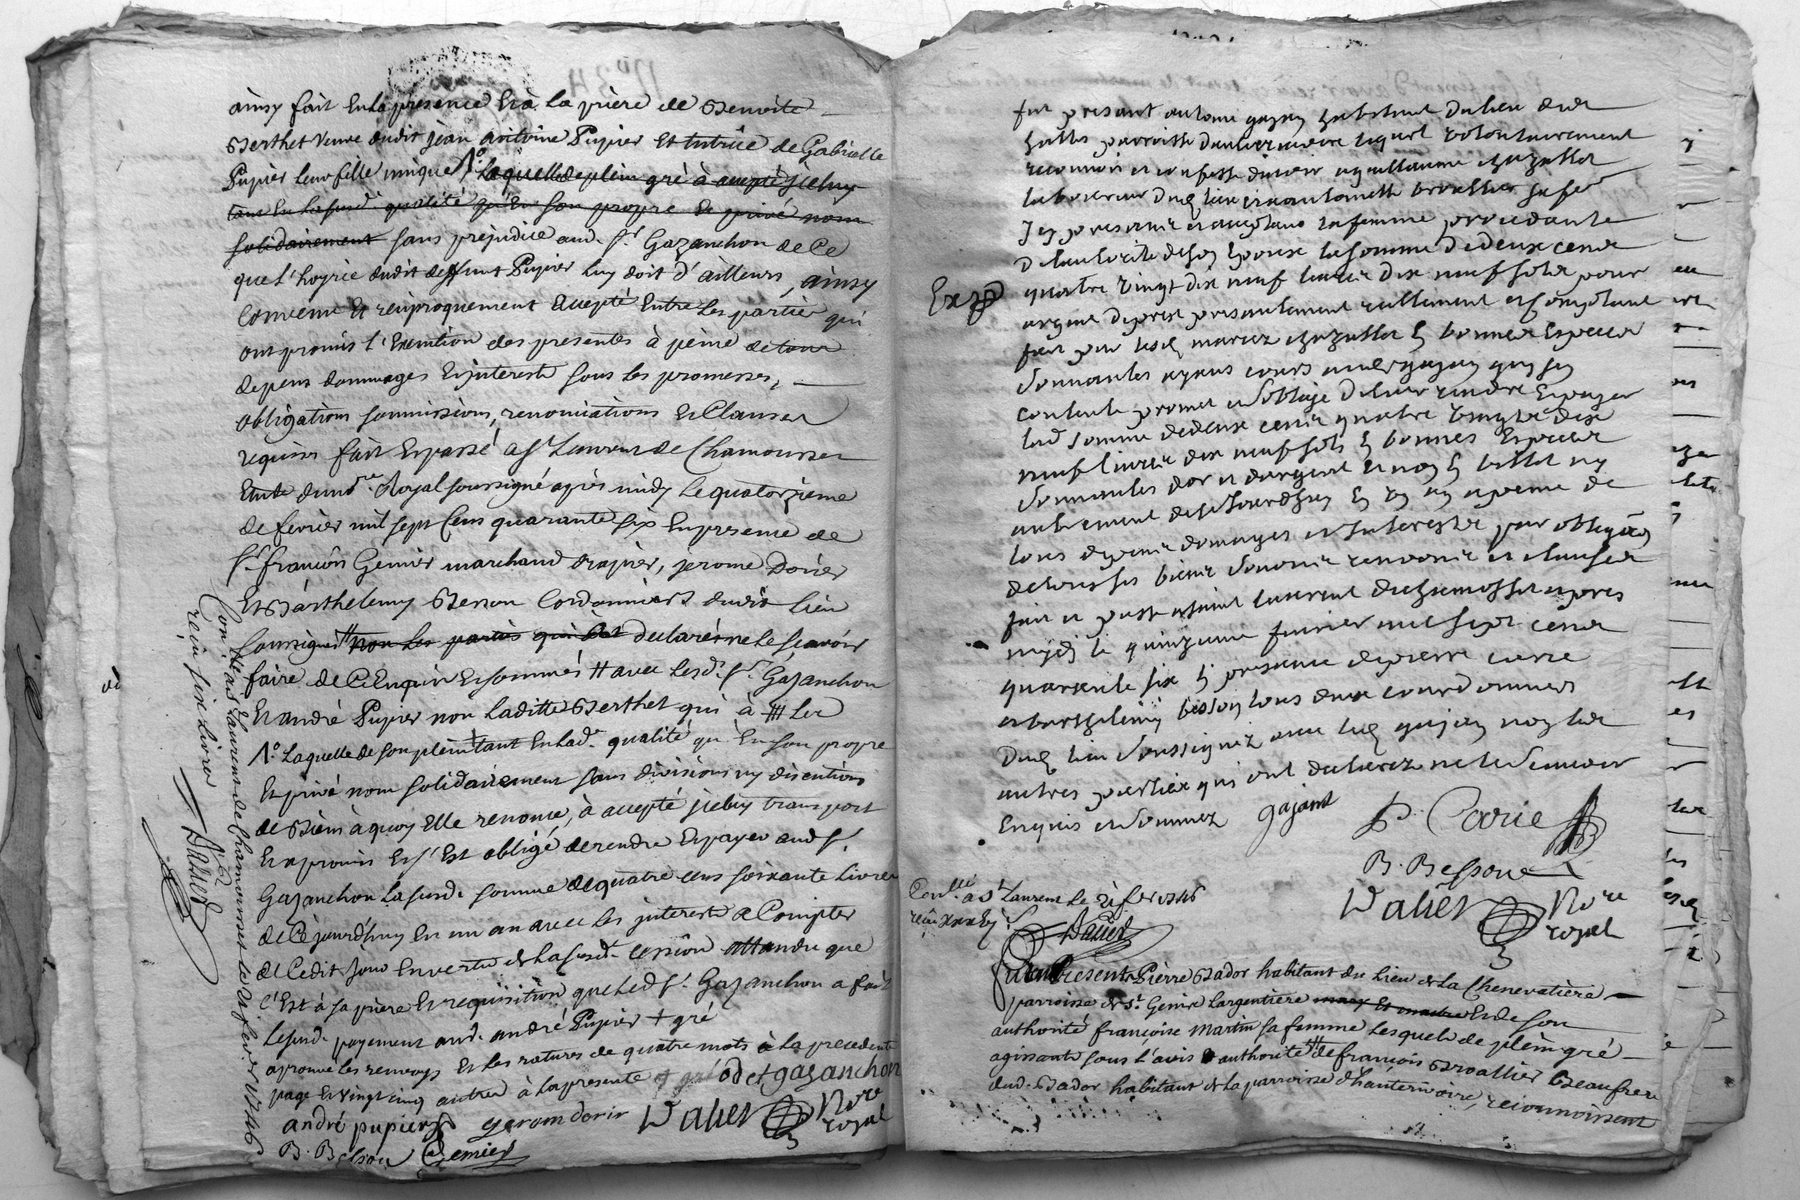 ainsy fait En la presence Et à la prière de Benoite
Berthet Veuve dudit jean antoine Pupier Et tutrice de Gabrielle
Pupier leur fille unique 1° Laquelle de plein gré à accepté jceluy
tant En lasusd. qualité qu'En son propre Et privé nom
solidairement sans prejudice aud. Sr. Gazanchon de Ce
que l'hoyrie dudit deffunt Pupier luy doit d'ailleurs, ainsy
Convenu Et reciproquement accepté Entre les parties qui
ont promis l'Execution des presentes à peine de tous
depens dommages Et jnterests sous les promesses,
obligations soumissions, renonciations Et Clauses
requises fait Et passé a St Laurent de Chamousset
Etude du nore Royal soussigné après midy Le quatorzieme
de fevrier mil sept Cens quarante six En presence de
Sr. françois Gemier marchand drapier, jerome Dorier
Et Barthelemy Besson Cordonniers dudit lieu
soussignés # non les parties qui ont declarés ne le scavoir
faire de Ce Enquis Et sommés # avec lesd. Sr. Gazanchon
Et andré Pupier non laditte Berthet qui à ## les
1° Laquelle de son plein + tant En lad. qualité qu'En son propre
Et privé nom solidairement sans division ny discution
de Biens à quoy Elle renonce, à accepté jceluy transport
Et a promis Et s'Est obligé de rendre Et payer aud. Sr.
Gazanchon Lasusd. somme de quatre cens soixante Livres
de Ce jourd'huy En un an avec les jnterests a Compter
de Cedit jour En vertu de Lasusd. cession attendu que
C'Est à sa prière Et requisition que led. Sr. Gazanchon a fait
Lesusd. payement aud. andré Pupier + gré
aprouvé les renvoys Et les ratures de quatre mots à la precedente
page Et vingt cinq autres à la presente
odet gazanchon
andré pupier gerom dorir Dalier Nore
royal
B. Besson Gemier
Conlé à St Laurent de Chamousset le 21 fevrier 1746
reçu six livres
Dalier
fut presant antoine gajan habitant du lieu de
halles parroisse lequel volontairement
reconnoit et confesse devoir a guillaume chazallet
laboureur dud. lieu et antoinette brossier sa fe
Icy presente et acceptans sa femme procedante
de lautorité de son Epoux la somme de deux cent
Exp
quatre vingt dix neuf livres dix neuf sols pour
argent de prest presentement reellement et comptant
fait par lesd. mariez chazallet En bonnes Especes
sonnantes ayans cours aud. gajan qui sen
contente promet et soblige de leur rendre Et payer
lad. somme de deux cent quatre vingts dix
neuf livres dix neuf sols En bonnes Especes
sonnantes dor et dargent et non En billet ny
autrement de ce jourdhuy En un an a peine de
tous depens domages et Interests par obligaon
de tous ses biens soumis renoncé et clauses
fait et passé a saint laurent de chamosset apres
midy le quinzieme fevrier mil sept cent
quarante six En presence de pierre carrie
et barthelemy besson tous deux courdonniers
dud. lieu soussignez avec led. gajan non les
autres parties qui ont declarez ne le scavoir
Enquis et sommez gajant P. Carrie
B. Besson
Dalier Nore
royal
Conlé a St Laurent le 21 fever 1746
Dalier
furent Presents Pierre Bador habitant du lieu de la Chenevatiere
parroisse de St. Genis Largentière Et de son
authorité françoise Martin sa femme Lesquels de plein gré
agissants sous l'avis & authorité # de françois Brossllier Beaufrere
dud. Bador habitant de la parroisse d'hauterivoire, reconnoissent